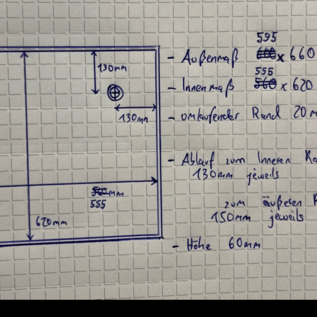 595
- Außenmaß 600 x 660
555
- Innenmaß 560 x 620
- umlaufender Rand 20m
- Ablauf zum Inneren Ra
130mm jeweils
zum äußeren R
150mm jeweils
- Höhe 60mm
130mm
130mm
mm
555
620mm